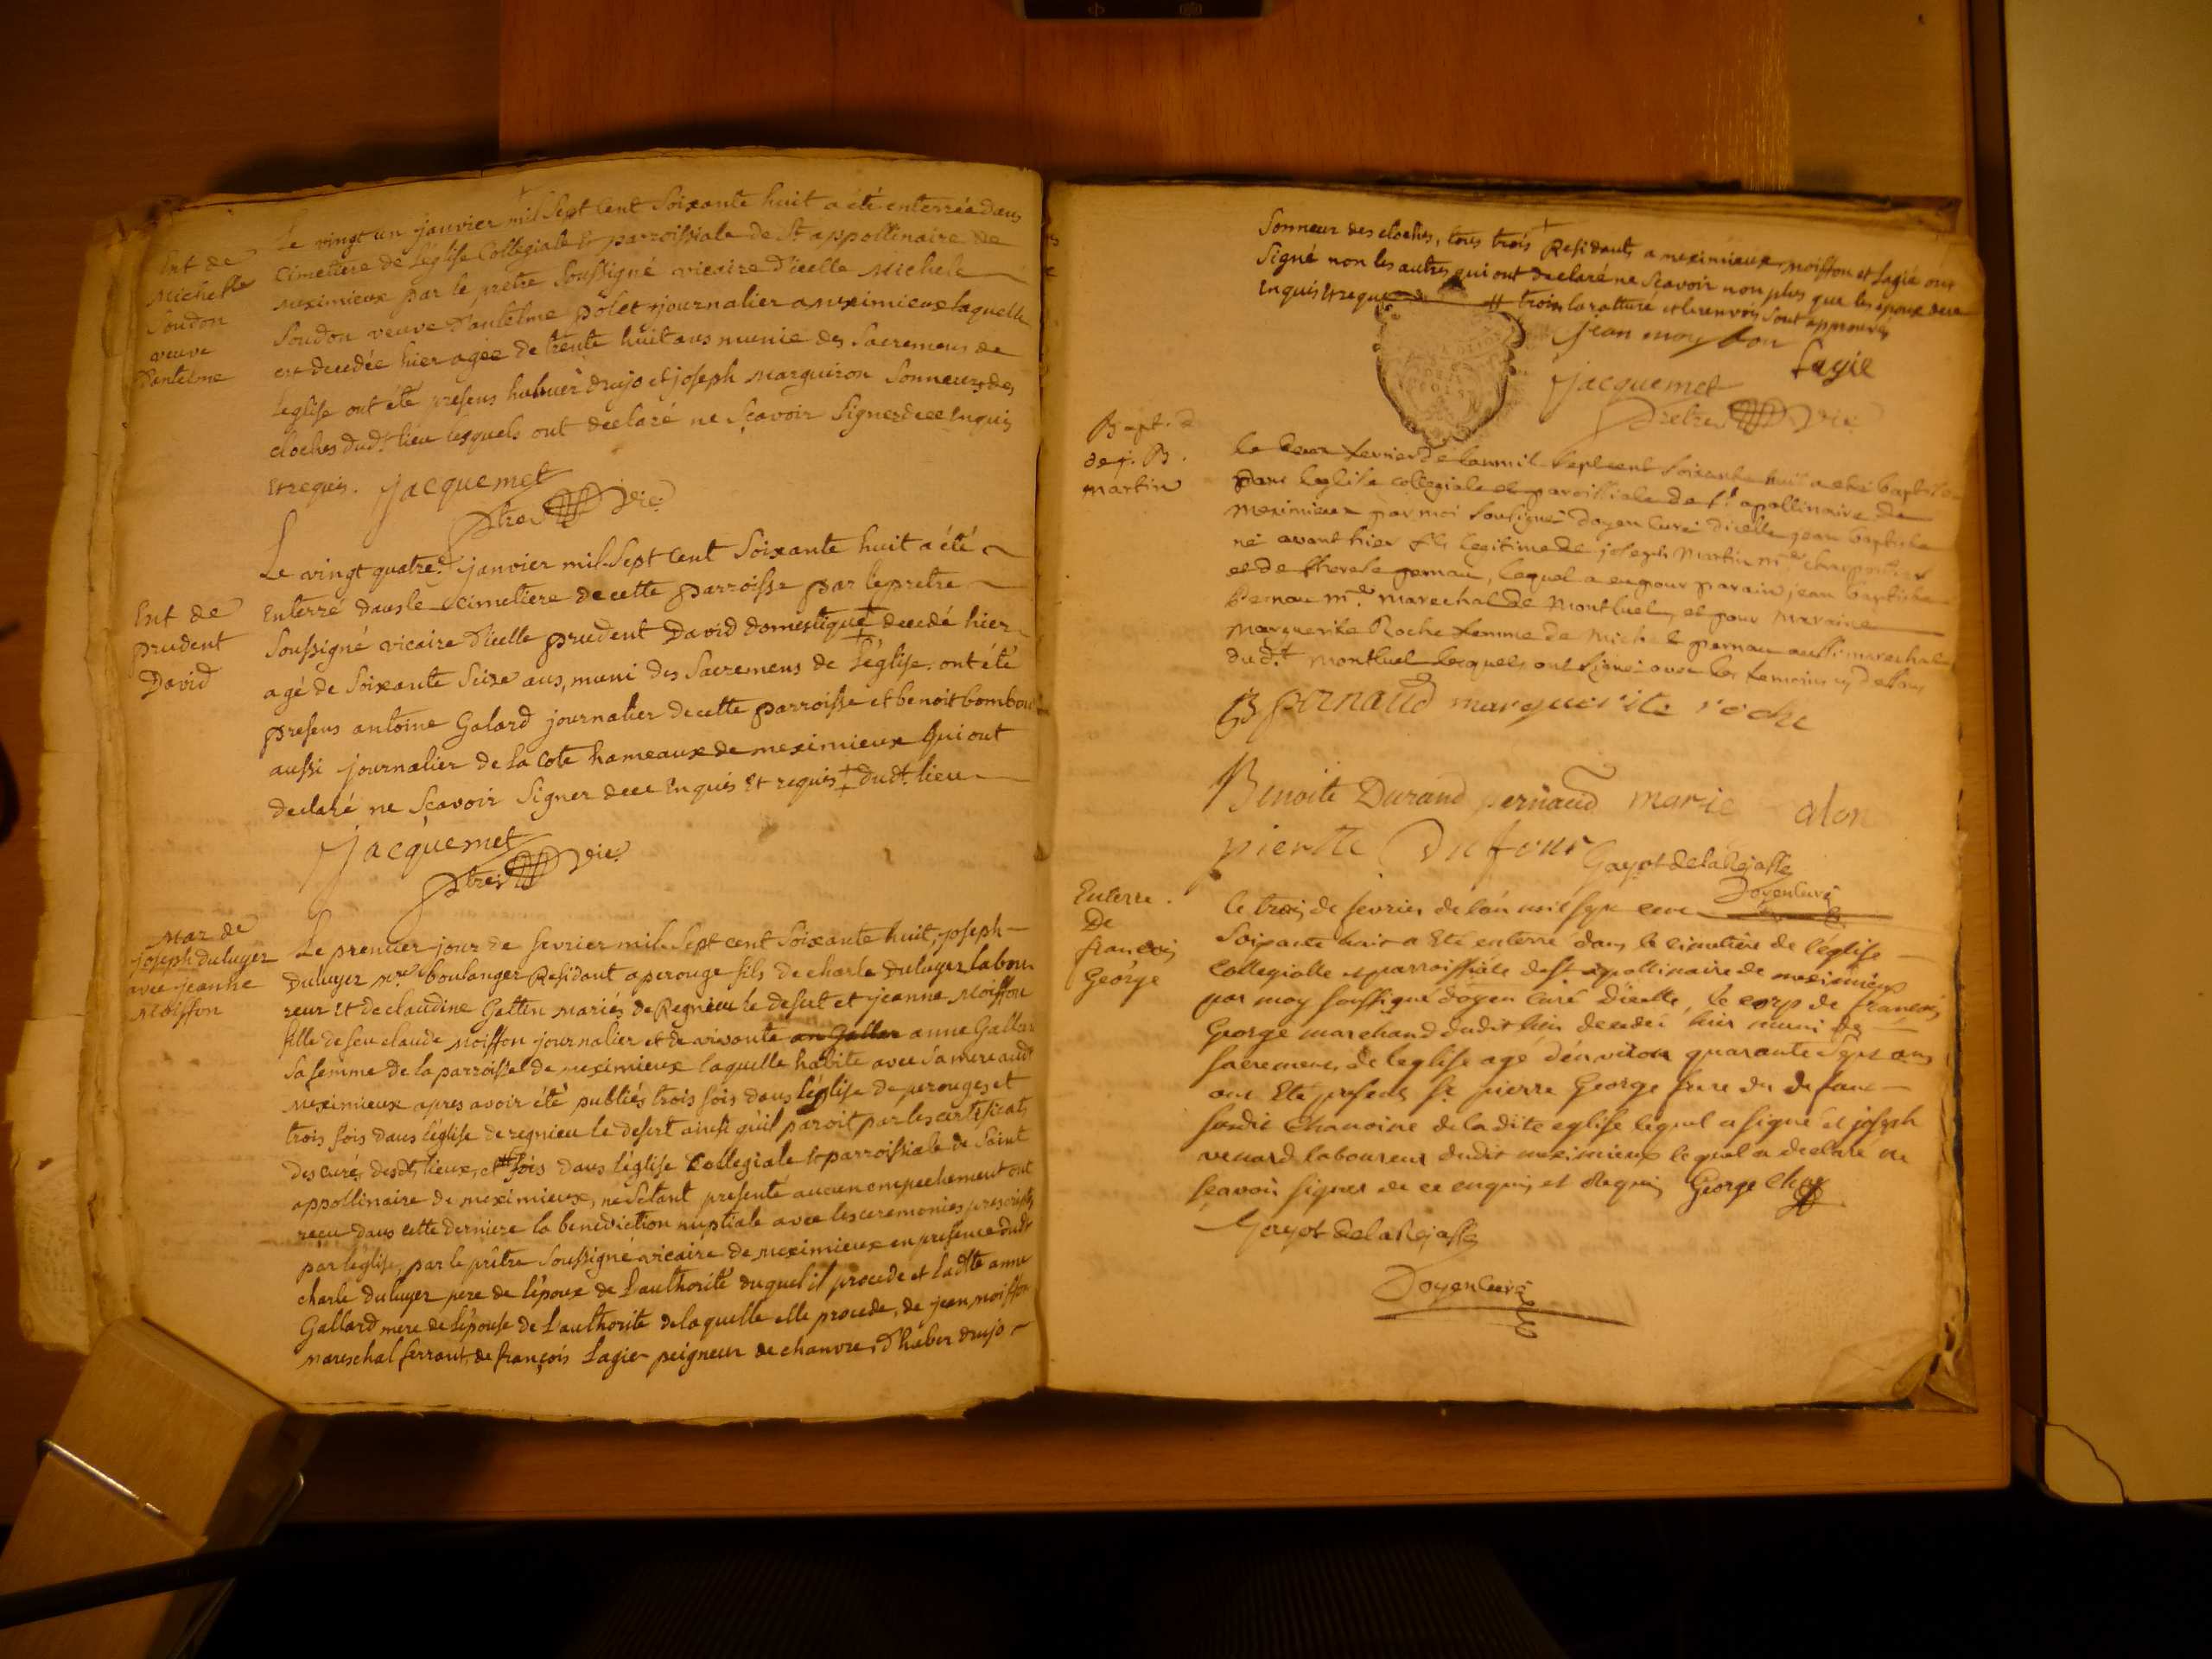 Ent de
Michelle
Soudon
veuve
dantelme
Le vingt un janvier mil Sept Cent Soixante huit a été enterrée dans
Cimetiere de L'église Collegiale & parroissiale de St. appollinaire de
Meximieux par le prêtre Soussigné vicaire d'icelle Michele
Soudon veuve d'antelme polet journalier a meximieux laquelle
est decedée hier agée de trente huit ans munie des Sacremens de
L'eglise ont été presens drujo et joseph Marguiron Sonneurs des
cloches dud. lieu lesquels ont declaré ne Sçavoir Signer de ce Enquis
Et requis. Jacquemet
ptre Vic.
Ent de
prudent
David
Le vingt quatre janvier mil Sept Cent Soixante huit a été
Enterré dans le cimetiere de cette parroisse par le pretre
Soussigné vicaire d'icelle prudent David domestique decedé hier
agé de Soixante Seize ans, muni des Sacremens de L'église. ont été
presens antoine Galard journalier de cette parroisse et benoit
aussi journalier de la Cote hameaux de meximieux Qui ont
declaré ne Sçavoir Signer de ce Enquis Et requis ‡ dudt. lieu
Jacquemet
ptre Vic.
Mar de
joseph duluyer
avec jeanne
Moiffon
Le premier jour de fevrier mil Sept cent Soixante huit, joseph
Duluyer Mre. boulanger Residant a perouge fils de charle Duluyer labou
reur Et de claudine Gattin mariés de Regnieu le desert et jeanne Moiffon
fille de feu claude Moiffon journalier et de vivante an Gallar anne Gallar
Sa femme de la parroisse de meximieux laquelle habite avec Sa mere audt
Meximieux apres avoir été publiés trois fois dans L'église de perouges et
trois fois dans L'église de regnieu le desert ainsi qu'il paroit par les certificats
des curés desdt. lieux, et # fois dans L'église Collegiale & parroissiale de Saint
appollinaire de meximieux, ne S'etant presenté aucun empechement ont
reçu dans cette derniere la benediction nuptiale avec les ceremonies prescrites
par L'eglise, par le prêtre Soussigné vicaire de meximieux en presence dudt
charle duluyer pere de L'époux de L'authorité duquel il procede et Ladte anne
Gallard mere de L'épouse de L'authorité de laquelle elle procede, de jean moiffon
Mareschal ferrant, de françois Lagier peigneur de chanvre, d'huber drujo
Sonneur des cloches, tous trois Residants a meximieux, moiffon et Lagié ont
Signé non les autres qui ont declaré ne Sçavoir non plus que les époux de ce
Enquis Et requis # trois la rature et le renvoi Sont approuvés
jean moyfon
Lagie
Jacquemet
Pretre Vic
Bapt. d
de j. B.
martin
le deux fevrier de l'an mil Sept cent Soixante huit a eté baptisé
dans l'eglise collegiale et paroissiale de St apollinaire de
meximieux par moi Soussigné doyen curé d'icelle jean baptiste
né avant hier fils legitime de joseph Martin me charpentier
et de therese pernau, lequel a eu pour parain jean baptiste
pernau me marechal de Montluel, et pour maraine
Marguerite Roche femme de Michel pernau aussi marechal
dudt Montluel lesquels ont signé avec les temoins cy dessous
B pernaud marguerite roche
Benoite Durand pernaud marie alon
pierette Dufour Gayot de la Rejasse
Doyen Curé
Enterre.
De
francois
George
le trois de fevrier de l'an mil sept cent
Soixante huit a Eté enterré dans le cimetière de l'église
Collegialle et parroissiale de St apollinaire de meximieux
par moy soussigné doyen curé d'icelle, le corp de francois
George marchand dudit lieu decedé hier muni des
sacremens de l'eglise agé d'environ quarante sept ans
ont Eté presens Sr pierre George frere du defunt
susdit chanoine de la dite eglise lequel a signé et joseph
venard laboureur dudit meximieux lequel a declaré ne
sçavoir signer de ce enquis et Requis George Cha
Gayot de la Rejasse
Doyen Curé